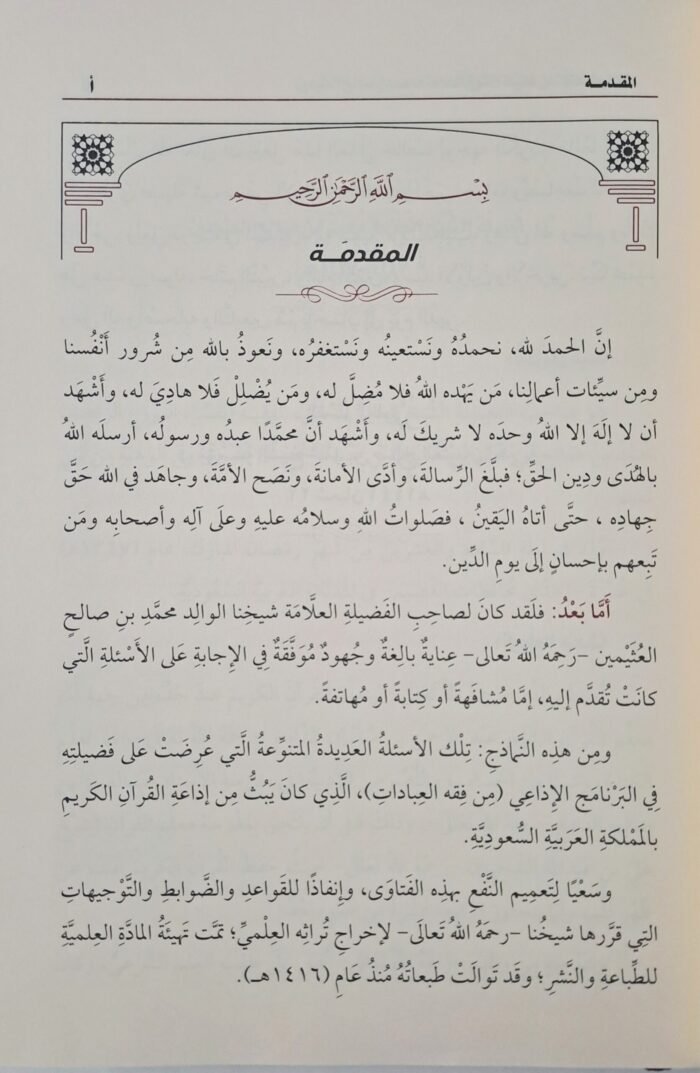 المقدمة
أ
بِسْمِ اللَّهِ الرَّحْمَٰنِ الرَّحِيمِ
المقدمَـة
إنَّ الحمدَ لله، نحمدُهُ ونَسْتعينُه ونَسْتغفرُه، ونَعوذُ بالله مِن شُرور أَنْفُسنا
ومِن سيِّئات أعمالِنا، مَن يَهْده اللهُ فلا مُضِلَّ له، ومَن يُضْلِلْ فَلا هاديَ له، وأَشْهَد
أن لا إلَهَ إلا اللهُ وحدَه لا شريكَ لَه، وأَشْهَد أنَّ محمَّدًا عبدُه ورسولُه، أرسلَه اللهُ
بالهُدَى ودِين الحقِّ؛ فبلَّغَ الرِّسالةَ، وأدَّى الأمانةَ، ونَصَح الأمَّةَ، وجاهَد في الله حَقَّ
جِهادِه ، حتَّى أتاهُ اليَقينُ ، فصَلواتُ اللهِ وسلامُه عليهِ وعلَى آلِه وأصحابِه ومَن
تَبِعهم بإحسانٍ إلَى يومِ الدِّين.
أَمَّا بَعْدُ: فلَقد كانَ لصاحِبِ الفَضيلةِ العلَّامَة شيخِنا الوالِد محمَّدِ بنِ صالحٍ
العُثَيْمين –رَحِمَهُ اللهُ تَعالى– عِنايةٌ بالِغةٌ وجُهودٌ مُوَفَّقَةٌ فِي الإِجابةِ عَلَى الأَسْئلةِ الَّتي
كانَتْ تُقدَّم إليهِ، إمَّا مُشافَهةً أو كِتابةً أو مُهاتفةً.
ومِن هذِه النَّماذجِ: تِلْك الأسئلةُ العَدِيدةُ المتنوِّعةُ الَّتي عُرِضَتْ عَلَى فَضيلتِهِ
فِي البَرْنامَج الإِذاعِي (مِن فِقه العِباداتِ)، الَّذِي كانَ يَبُثُّ مِن إذاعَةِ القُرآنِ الكَريمِ
بالمَمْلكةِ العَرَبيَّةِ السُّعوديَّةِ.
وسَعْيًا لِتَعمِيم النَّفْعِ بهذِه الفَتاوَى، وإِنفاذًا للقَواعِد والضَّوابطِ والتَّوْجيهاتِ
التِي قرَّرها شيخُنا –رحمَهُ اللهُ تَعالَى– لإخراجِ تُراثِه العِلْميِّ؛ تمَّت تَهيئَةُ المادَّةِ العِلميَّةِ
للطِّباعةِ والنَّشرِ؛ وقد تَوالَتْ طَبعاتُهُ مُنذُ عَامِ (١٤١٦هـ).